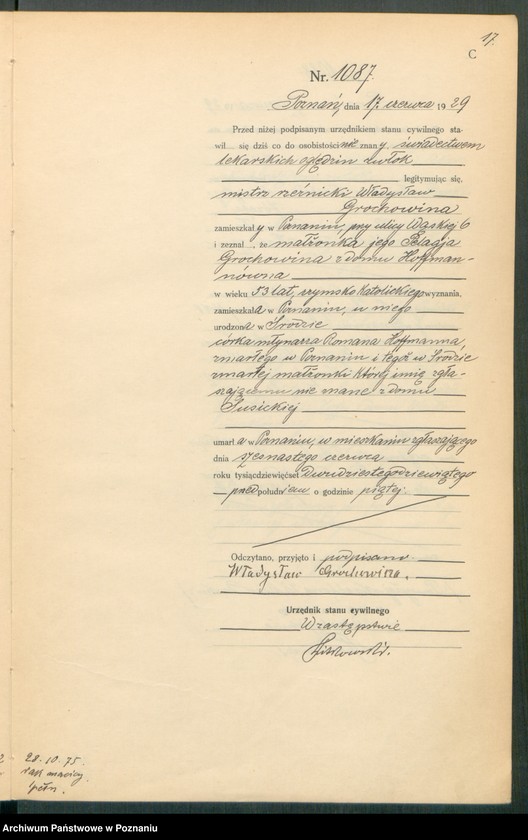 17.
C
Nr. 1087.
Poznań, dnia 17 czerwca 1929
Przed niżej podpisanym urzędnikiem stanu cywilnego sta-
wił się dziś co do osobistości nie znany, świadectwem
lekarskich oględzin zwłok
legitymując się,
mistrz rzeźnicki Władysław
Grochowina
zamieszkały w Poznaniu, przy ulicy Wąskiej 6
i zeznał, że małżonka jego Pelagja
Grochowina z domu Hoffman-
nówna
w wieku 53 lat, rzymsko katolickiego wyznania,
zamieszkała w Poznaniu, u niego
urodzona w Środzie
córka młynarza Romana Hoffmanna,
zmarłego w Poznaniu i tegoż w Środzie
zmarłej małżonki której imię zgła-
szającemu nie znane z domu
Susickiej
umarła w Poznaniu, w mieszkaniu zgłaszającego
dnia szesnastego czerwca
roku tysiącdziewięćset dwudziestegodziewiątego
przed południem o godzinie piątej.
Odczytano, przyjęto i podpisano
Władysław Grochowina.
Urzędnik stanu cywilnego
W zastępstwie
28.10.75.
rak macicy
Archiwum Państwowe w Poznaniu